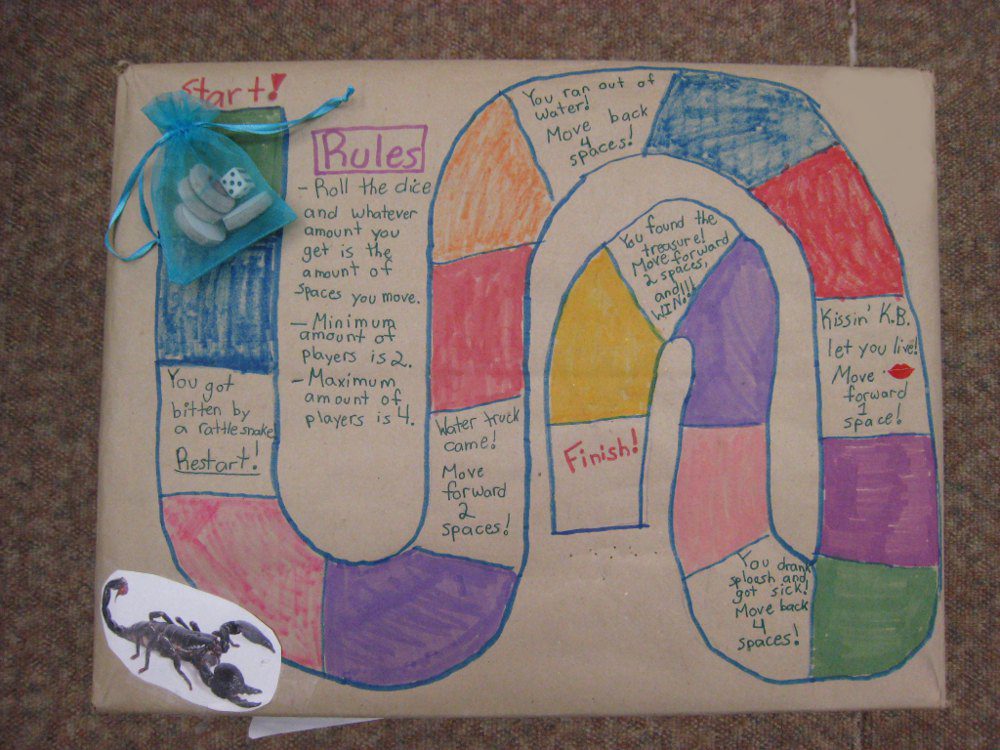 Start!
Rules
- Roll the dice
and whatever
amount you
get is the
amount of
spaces you move.
- Minimum
amount of
players is 2.
- Maximum
amount of
players is 4.
You got
bitten by
a rattlesnake
Restart!
Water truck
came!
Move
forward
2
spaces!
You ran out of
Water!
Move back
4
spaces!
Kissin' K.B.
let you live!
Move
forward
1
space!
You drank
sploosh and
got sick!
Move back
4
spaces!
You found the
treasure!
Move forward
2 spaces,
and!!!
WIN!!!
Finish!